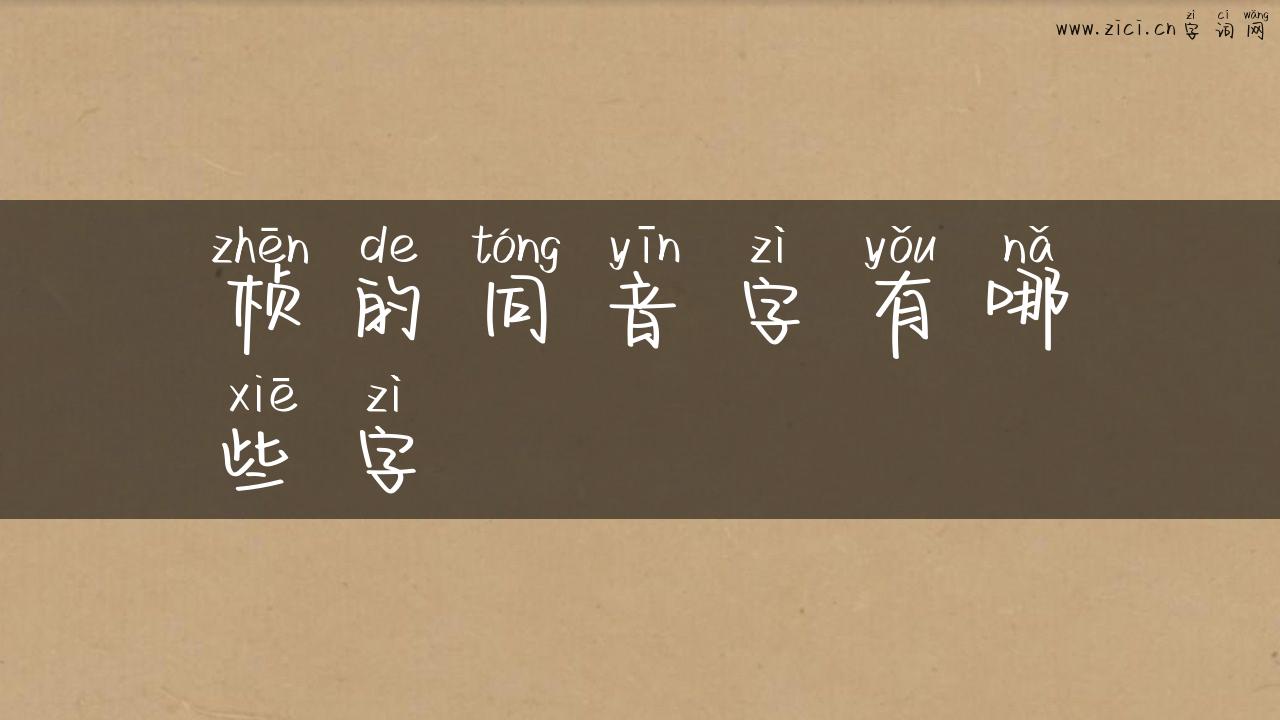 zì cí wǎng
www.zici.cn 字词网
zhēn de tóng yīn zì yǒu nǎ
桢的同音字有哪
xiē zì
些字